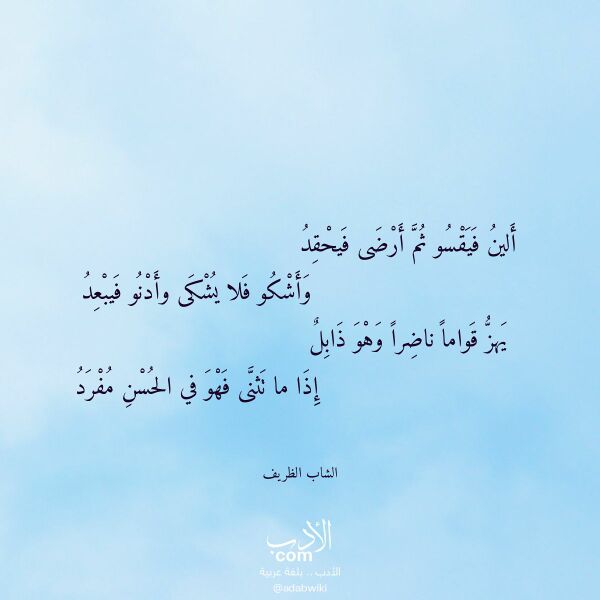 أَلينُ فَيَقْسُو ثُمَّ أَرْضَى فَيَحْقِدُ
وَأَشْكُو فَلا يُشْكَى وأَدْنُو فَيبْعِدُ
يَهزُّ قَواماً ناضِراً وَهْوَ ذَابِلٌ
إِذَا ما تَثنَّى فَهْوَ في الحُسْنِ مُفْرَدُ
الشاب الظريف
الأدب
com
الأدب .. بلغة عربية
@adabwiki